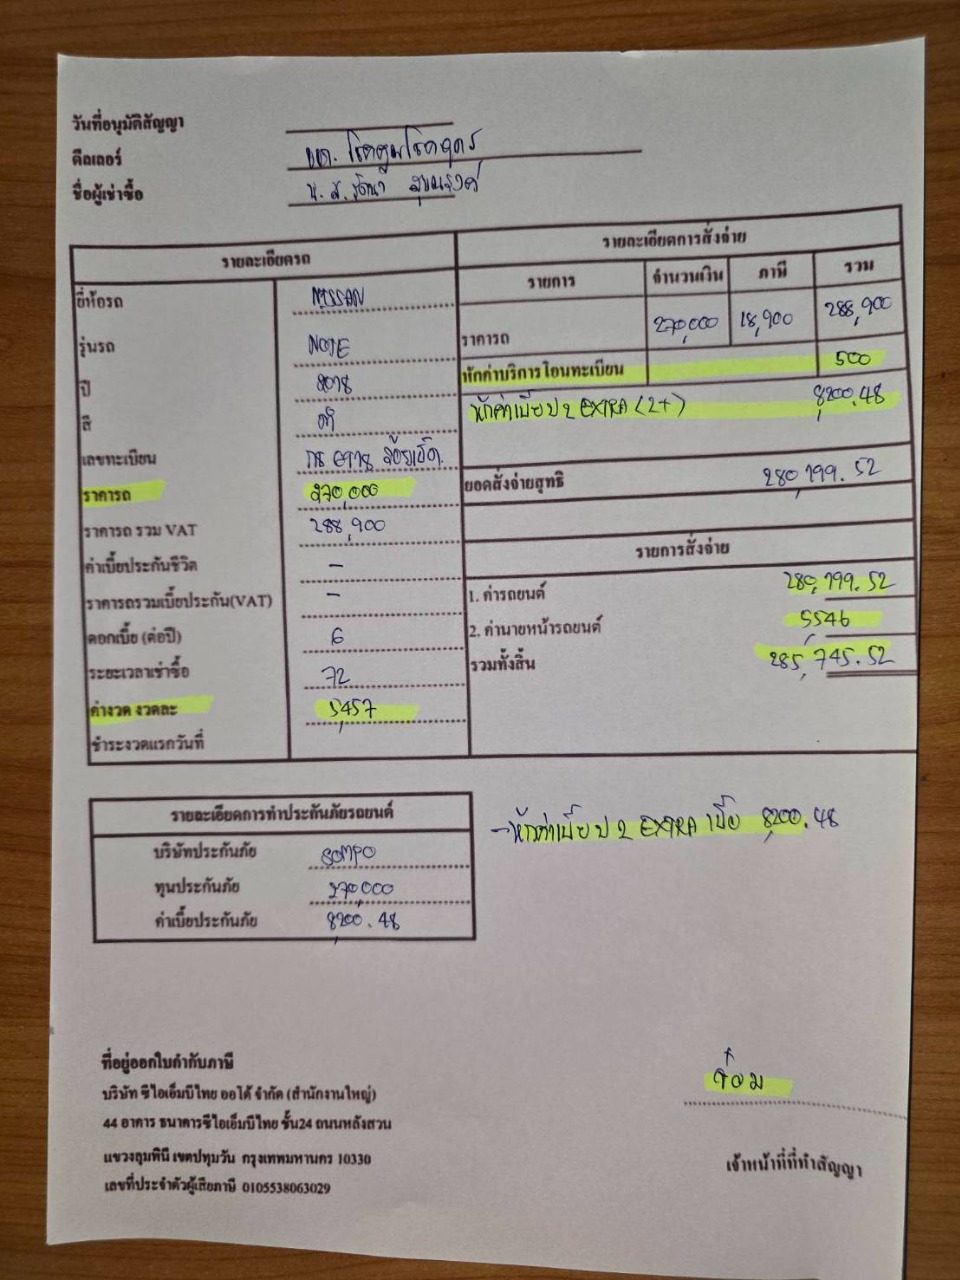 วันที่อนุมัติสัญญา
ดีลเลอร์ หจก. โชคคูณโชคถุาวร
ชื่อผู้เช่าซื้อ น.ส.
รายละเอียดรถ
ยี่ห้อรถ NISSAN
รุ่นรถ NOTE
ปี 2018
สี ดำ
เลขทะเบียน ร้อยเอ็ด
ราคารถ 270,000
ราคารถ รวม VAT 288,900
ค่าเบี้ยประกันชีวิต -
ราคารถรวมเบี้ยประกัน(VAT) -
ดอกเบี้ย (ต่อปี) 6
ระยะเวลาเช่าซื้อ 72
ค่างวด งวดละ 5,457
ชำระงวดแรกวันที่
รายละเอียดการสั่งจ่าย
รายการ จำนวนเงิน ภาษี รวม
ราคารถ 270,000 18,900 288,900
หักค่าบริการโอนทะเบียน 500
หักค่าเบี้ย ป 2 EXTRA (2+) 8200.48
ยอดสั่งจ่ายสุทธิ 280,199.52
รายการสั่งจ่าย
1. ค่ารถยนต์ 280,199.52
2. ค่านายหน้ารถยนต์ 5546
รวมทั้งสิ้น 285,745.52
รายละเอียดการทำประกันภัยรถยนต์
บริษัทประกันภัย SOMPO
ทุนประกันภัย 270,000
ค่าเบี้ยประกันภัย 8,200.48
- หักค่าเบี้ย ป 2 EXTRA เบี้ย 8,200.48
ที่อยู่ออกใบกำกับภาษี
บริษัท ซีไอเอ็มบีไทย ออโต้ จำกัด (สำนักงานใหญ่)
44 อาคาร ธนาคารซีไอเอ็มบีไทย ชั้น24 ถนนหลังสวน
แขวงลุมพินี เขตปทุมวัน กรุงเทพมหานคร 10330
เลขที่ประจำตัวผู้เสียภาษี 0105538063029
เจ้าหน้าที่ที่ทำสัญญา